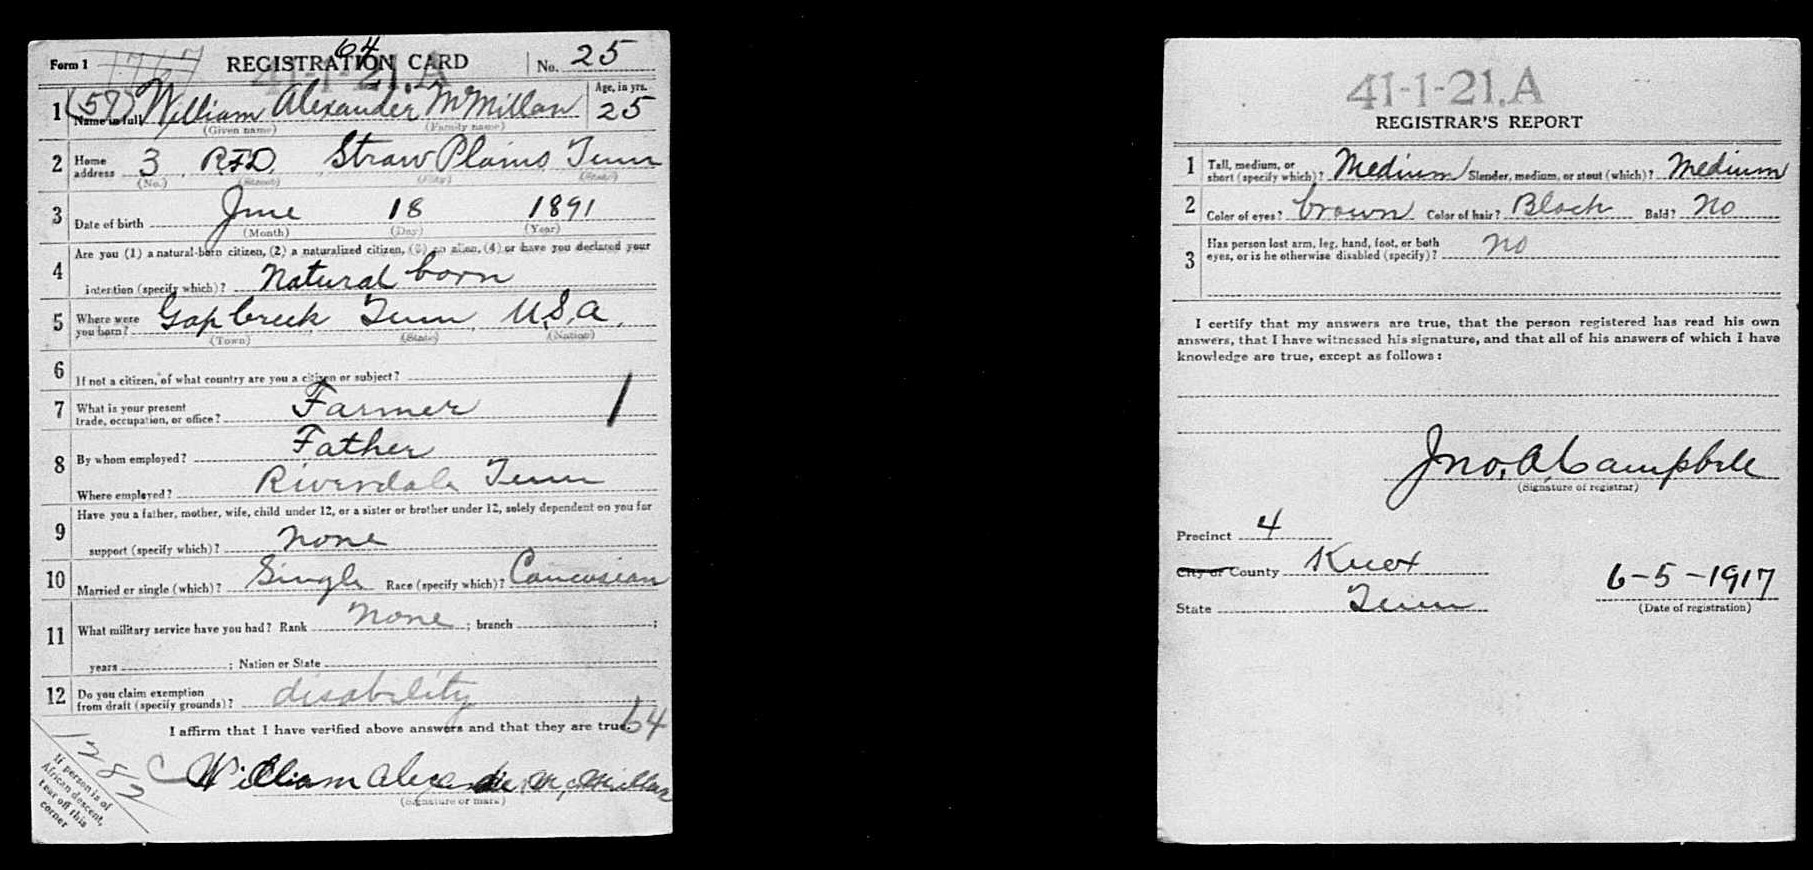 Form 1 1767 REGISTRATION CARD No. 25
64
41-1-21.A
1 (57) William Alexander McMillan Age, in yrs. 25
Name in full (Given name) (Family name)
2 Home address 3 RFD. Straw Plains Tenn
(No.) (Street) (City) (State)
3 Date of birth June 18 1891
(Month) (Day) (Year)
4 Are you (1) a natural-born citizen, (2) a naturalized citizen, (3) an alien, (4) or have you declared your
intention (specify which)? Natural born
5 Where were you born? Gap Creek Tenn U.S.A.
(Town) (State) (Nation)
6 If not a citizen, of what country are you a citizen or subject?
7 What is your present trade, occupation, or office? Farmer 1
8 By whom employed? Father
Where employed? Riverdale Tenn
9 Have you a father, mother, wife, child under 12, or a sister or brother under 12, solely dependent on you for
support (specify which)? None
10 Married or single (which)? Single Race (specify which)? Caucasian
11 What military service have you had? Rank None ; branch ;
years ; Nation or State
12 Do you claim exemption from draft (specify grounds)? disability
I affirm that I have verified above answers and that they are true. 64
1282
William Alexander McMillan
(Signature or mark)
If person is of
African descent,
tear off this
corner
41-1-21.A
REGISTRAR'S REPORT
1 Tall, medium, or short (specify which)? Medium Slender, medium, or stout (which)? Medium
2 Color of eyes? brown Color of hair? Black Bald? No
3 Has person lost arm, leg, hand, foot, or both
eyes, or is he otherwise disabled (specify)? no
I certify that my answers are true, that the person registered has read his own
answers, that I have witnessed his signature, and that all of his answers of which I have
knowledge are true, except as follows:
Jno. A. Campbell
(Signature of registrar)
Precinct 4
City or County Knox 6-5-1917
State Tenn (Date of registration)